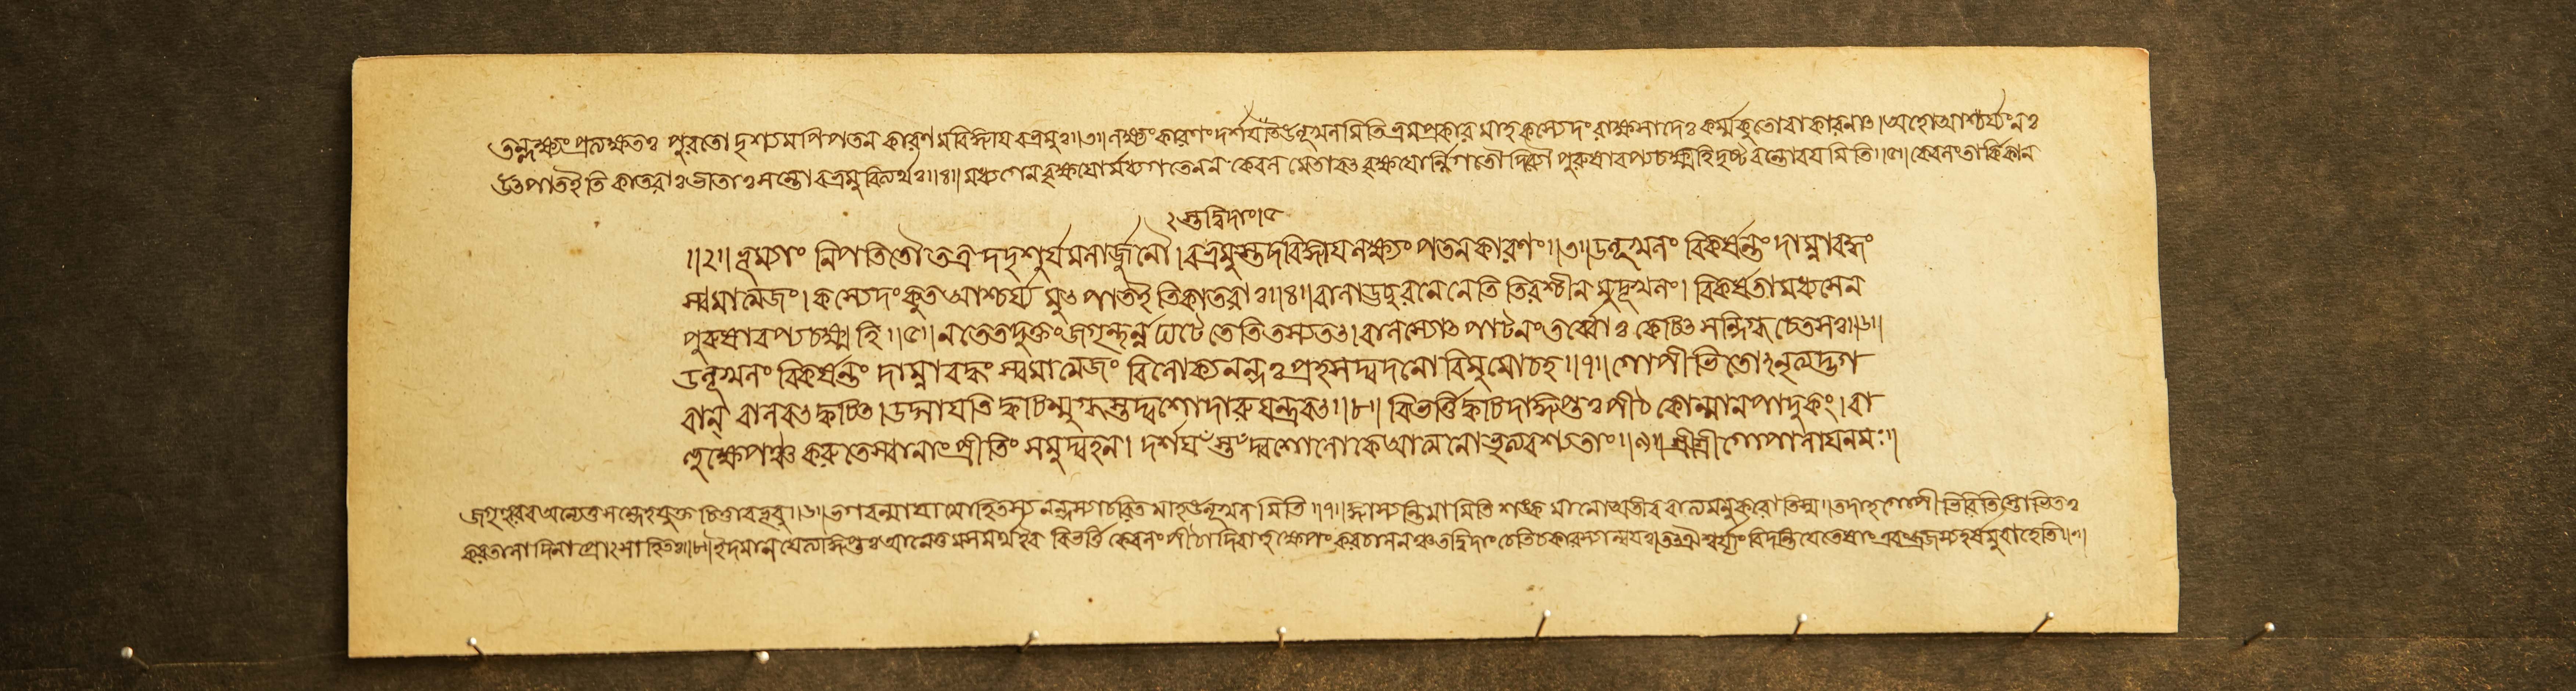 তল্লক্ষ্যং প্রত্যক্ষতঃ পুরতো দৃশ্যমপি পতন কারণমবিজ্ঞায় বভ্রমুঃ॥৩॥ লক্ষ্যং কারণং দর্শয়তি উলূখলমিতি ভ্রমপ্রকার মাহ কস্যেদং রাক্ষসাদেঃ কর্ম্ম কুতো বা কারণাৎ। অহো আশ্চর্য্যংনঃ
উৎপাতইতি কাতরাঃ ভীতাঃ সন্তো বভ্রমুরিত্যর্থঃ॥৪॥ মধ্যগেন বৃক্ষয়োর্মধ্যগতেন ন কেবল মেতাবৎ বৃক্ষয়োর্নির্গতৌ দিব্যৌ পুরুষাবপ্যচক্ষ্মহি দৃষ্টবন্তোবয়মিতি॥৫॥ কেবলং তার্কিকান
২ স্তদ্বিদাং। ৫
॥২॥ ভূম্যাং নিপতিতৌ তত্র দদৃশুর্যমলার্জ্জুনৌ। বভ্রমুস্তদবিজ্ঞায় লক্ষ্যং পতনকারণং॥৩॥ উলূখলং বিকর্ষন্তং দাম্না বদ্ধং
স্বমাত্মজং। কস্যেদং কুত আশ্চর্য্য মুৎপাতইতি কাতরাঃ॥৪॥ বালা উচুরনেনেতি তিরশ্চীন মুলূখলং। বিকর্ষতা মধ্যগেন
পুরুষাবপ্যচক্ষ্মহি॥৫॥ ন তে তদুক্তং জগৃহুর্ন্ন ঘটেতেতি তস্য তৎ। বালস্যোৎপাটনং তর্ব্বোঃ কেচিৎ সন্দিগ্ধ চেতসঃ॥৬॥
উলূখলং বিকর্ষন্তং দাম্না বদ্ধং স্বমাত্মজং বিলোক্য নন্দঃ প্রহসদ্বদনো বিমুমোচহ॥৭॥ গোপীভিস্তোঽনৃত্যদ্ভগ
বান্ বালবৎ ক্বচিৎ। উদ্গায়তি ক্বচিন্মুগ্ধস্তদ্বশোদারুযন্ত্রবৎ॥৮॥ বিভর্ত্তি ক্বচিদাজ্ঞপ্তঃ পীঠ কোন্মানপাদুকং। বা
হুক্ষেপঞ্চ কুরুতে স্বানাং প্রীতিং সমুদ্বহন। দর্শয়ঁ স্তদ্বশোলোকে আত্মনো ভৃত্যবশ্যতাং॥৯॥ শ্রীশ্রীগোপালায় নমঃ॥
জগৃহুরেব অন্যেতু সন্দেহযুক্ত চিত্তা বভূবুঃ॥৬॥ ভগবন্মায়ামোহিতস্য নন্দস্য চরিত মাহ উলূখলমিতি॥৭॥ জ্ঞাস্যন্তি মামিতি শঙ্কমানোঽতীব বাল্যমনুকরোতিস্ম। তদাহ গোপীভিরিতি স্তোভিতঃ
করতালাদিনা প্রোৎসাহিতঃ॥৮॥ ইদমানয়েত্যাজ্ঞপ্তঃ আনেতুমসমর্থইব বিভর্ত্তি কেবলং পীঠাদি বাহুক্ষেপং করচালনঞ্চ তদ্বিদাং চেতিচকারস্যান্বয়ঃ। তৎ ঐশ্বর্য্যং বিদন্তি যে তেষাং এবং ব্রজস্য হর্ষমুবাহেতি॥৯॥